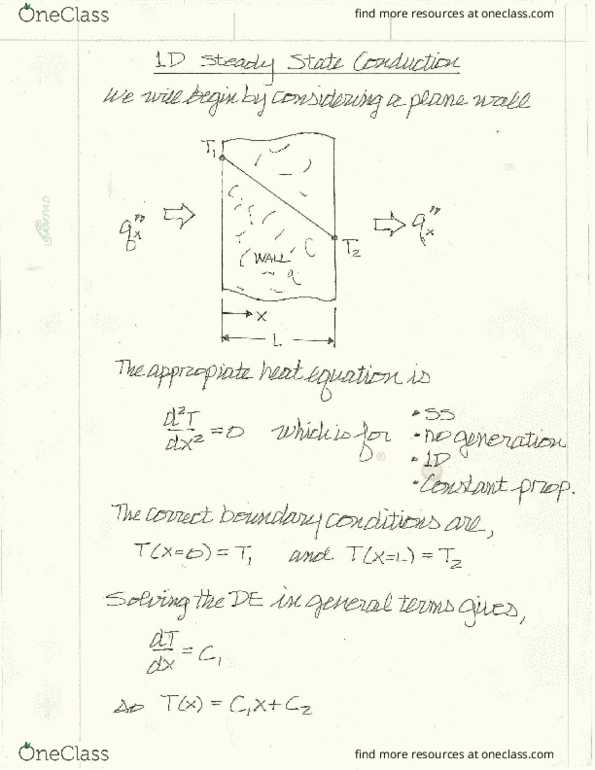 OneClass
find more resources at oneclass.com
1D Steady State Conduction
We will begin by considering a plane wall
T₁
qₓ" ⇨
⇨ qₓ"
T₂
WALL
x
L
The appropiate heat equation is
d²T/dx² = 0 which is for
• SS
• no generation
• 1D
• Constant prop.
The correct boundary conditions are,
T(x=0) = T₁ and T(x=L) = T₂
Solving the DE in general terms gives,
dT/dx = C₁
so T(x) = C₁x + C₂
OneClass
find more resources at oneclass.com